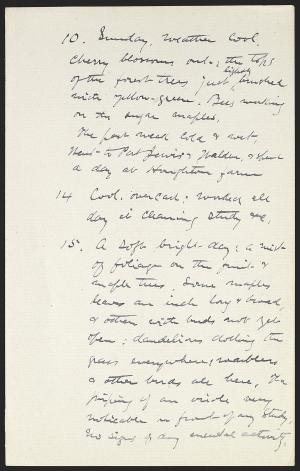 10. Sunday, weather cool.
Cherry blossoms out; the tops
of the forest trees just lightly brushed
with yellow-green. Bees working
on the sugar maples.
The past week cold & wet.
Went to Port Jervis & Walden, & spent
a day at Houghton farm
14 Cool, overcast; worked all
day at cleaning study etc.
15. A soft bright day; a mist
of foliage on the fruit &
maple trees. Some maples
leaves an inch long & broad,
& others with buds not yet
open; dandelions dotting the
grass everywhere; warblers
& other birds all here. The
piping of an oriole very
noticeable in front of my study.
No signs of any mental activity,